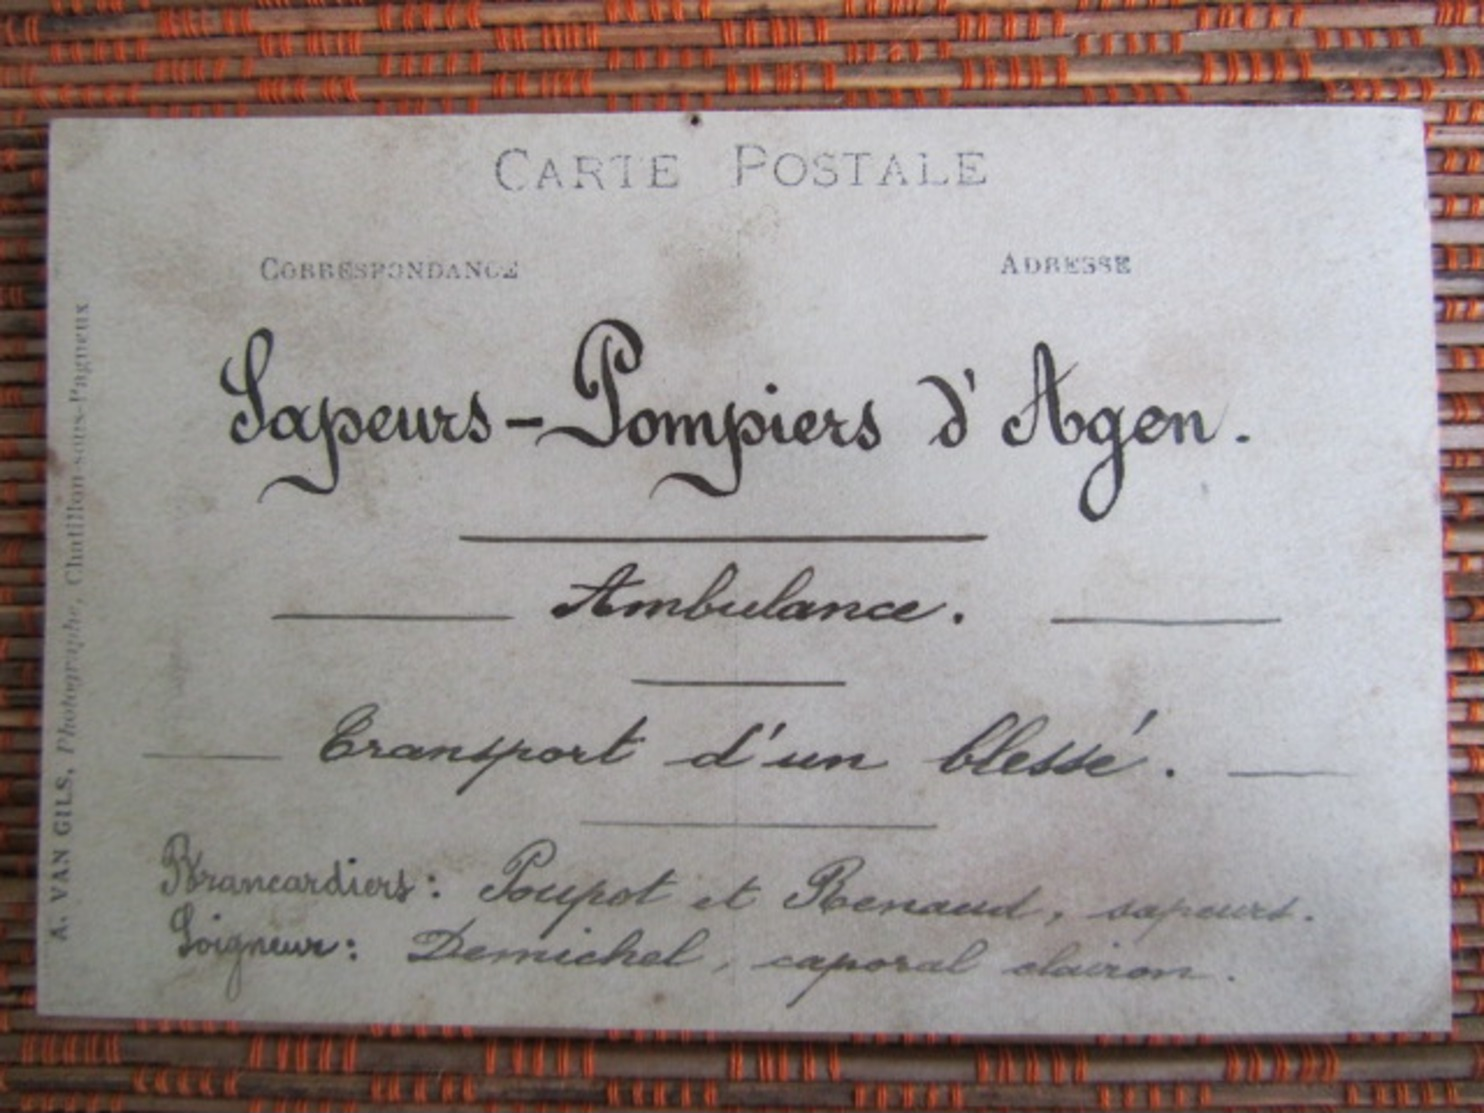 CARTE POSTALE
CORRESPONDANCE ADRESSE
Sapeurs-Pompiers d'Agen.
Ambulance.
Transport d'un blessé.
Brancardiers: Poupot et Renaud, sapeurs.
Soigneur: Demichel, caporal clairon.
A. VAN GILS, Photographe, Chatillon-sous-Bagneux